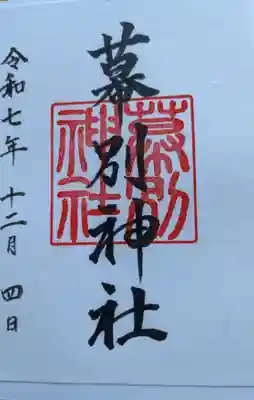 幕別神社
幕別
神社
令和七年 十二月 四日